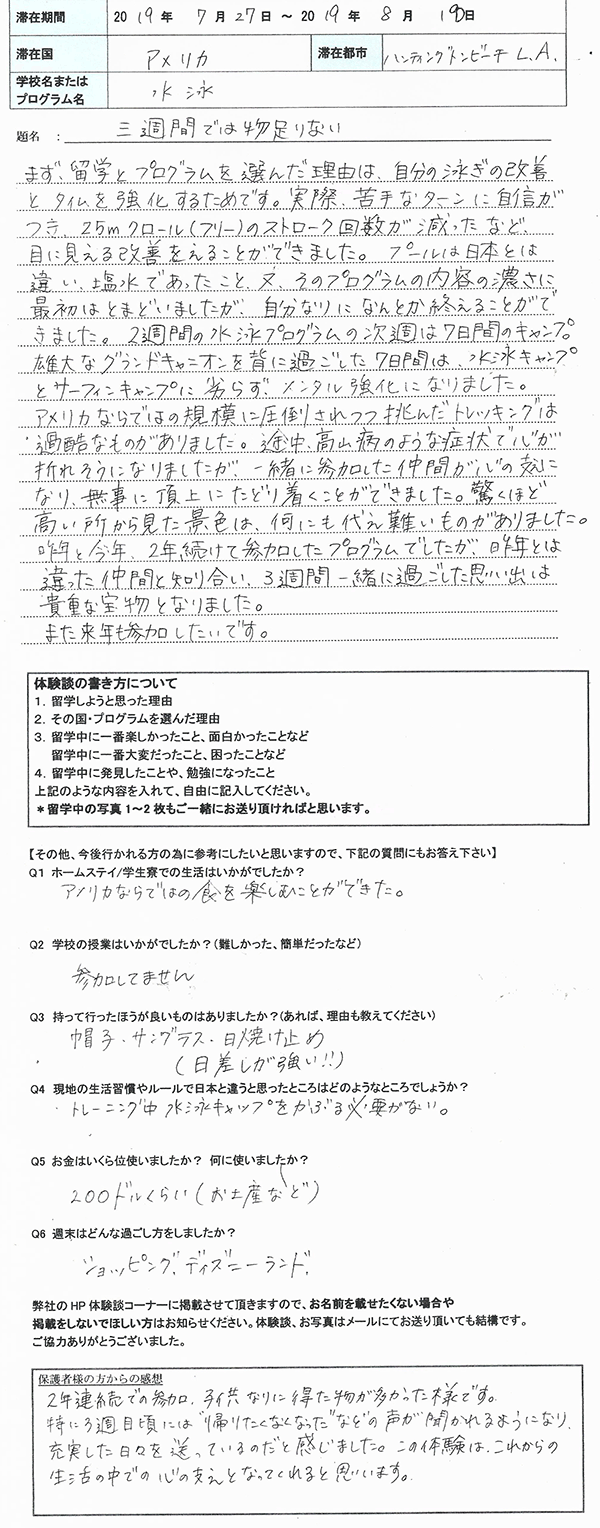 滞在期間 2019年 7月27日 ～ 2019年 8月 19日
滞在国 アメリカ 滞在都市 ハンティングトンビーチ L.A.
学校名または
プログラム名 水泳
題名 : 三週間では物足りない
まず、留学とプログラムを選んだ理由は、自分の泳ぎの改善
とタイムを強化するためです。実際、苦手なターンに自信が
つき、25mクロール(フリー)のストローク回数が減ったなど、
目に見える改善をえることができました。プールは日本とは
違い、塩水であったこと、又、そのプログラムの内容の濃さに
最初はとまどいましたが、自分なりになんとか終えることがで
きました。2週間の水泳プログラムの次週は7日間のキャンプ。
雄大なグランドキャニオンを背に過ごした7日間は、水泳キャンプ
とサーフィンキャンプに劣らず、メンタル強化になりました。
アメリカならではの規模に圧倒されつつ挑んだトレッキングは
過酷なものがありました。途中、高山病のような症状で心が
折れそうになりましたが、一緒に参加した仲間が心の支えに
なり、無事に頂上にたどり着くことができました。驚くほど
高い所から見た景色は、何にも代え難いものがありました。
昨年と今年、2年続けて参加したプログラムでしたが、昨年とは
違った仲間と知り合い、3週間一緒に過ごした思い出は
貴重な宝物となりました。
また来年も参加したいです。
体験談の書き方について
1. 留学しようと思った理由
2. その国・プログラムを選んだ理由
3. 留学中に一番楽しかったこと、面白かったことなど
留学中に一番大変だったこと、困ったことなど
4. 留学中に発見したことや、勉強になったこと
上記のような内容を入れて、自由に記入してください。
＊留学中の写真1～2枚もご一緒にお送り頂ければと思います。
【その他、今後行かれる方の為に参考にしたいと思いますので、下記の質問にもお答え下さい】
Q1 ホームステイ/学生寮での生活はいかがでしたか？
アメリカならではの食を楽しむことができた。
Q2 学校の授業はいかがでしたか？(難しかった、簡単だったなど)
参加してません
Q3 持って行ったほうが良いものはありましたか？(あれば、理由も教えてください)
帽子・サングラス・日焼け止め
(日差しが強い!!)
Q4 現地の生活習慣やルールで日本と違うと思ったところはどのようなところでしょうか？
・トレーニング中 水泳キャップをかぶる必要がない。
Q5 お金はいくら位使いましたか？ 何に使いましたか？
200ドルくらい(お土産など)
Q6 週末はどんな過ごし方をしましたか？
ショッピング、ディズニーランド、
弊社のHP体験談コーナーに掲載させて頂きますので、お名前を載せたくない場合や
掲載をしないでほしい方はお知らせください。体験談、お写真はメールにてお送り頂いても結構です。
ご協力ありがとうございました。
保護者様の方からの感想
2年連続での参加、子供なりに得た物が多かった様です。
特に3週目頃には"帰りたくなくなった"などの声が聞かれるようになり、
充実した日々を送っているのだと感じました。この体験は、これからの
生活の中での心の支えとなってくれると思います。